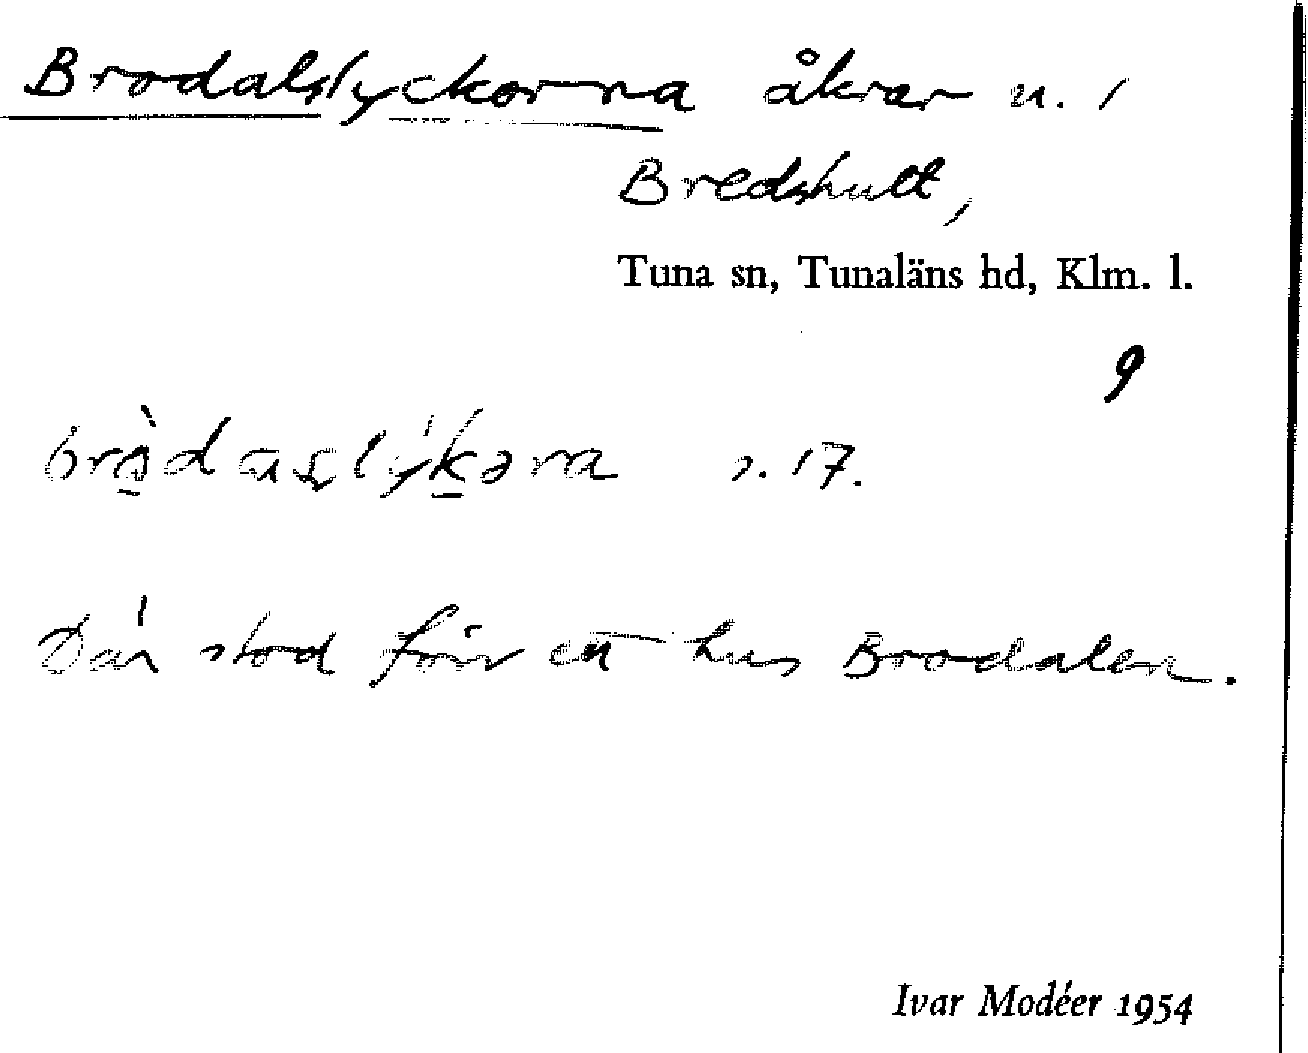 Brodalslyckorna åkrar n. 1
Bredshult,
Tuna sn, Tunaläns hd, Klm. l.
9
s. 17.
Där stod förr ett hus Brodalen.
Ivar Modéer 1954